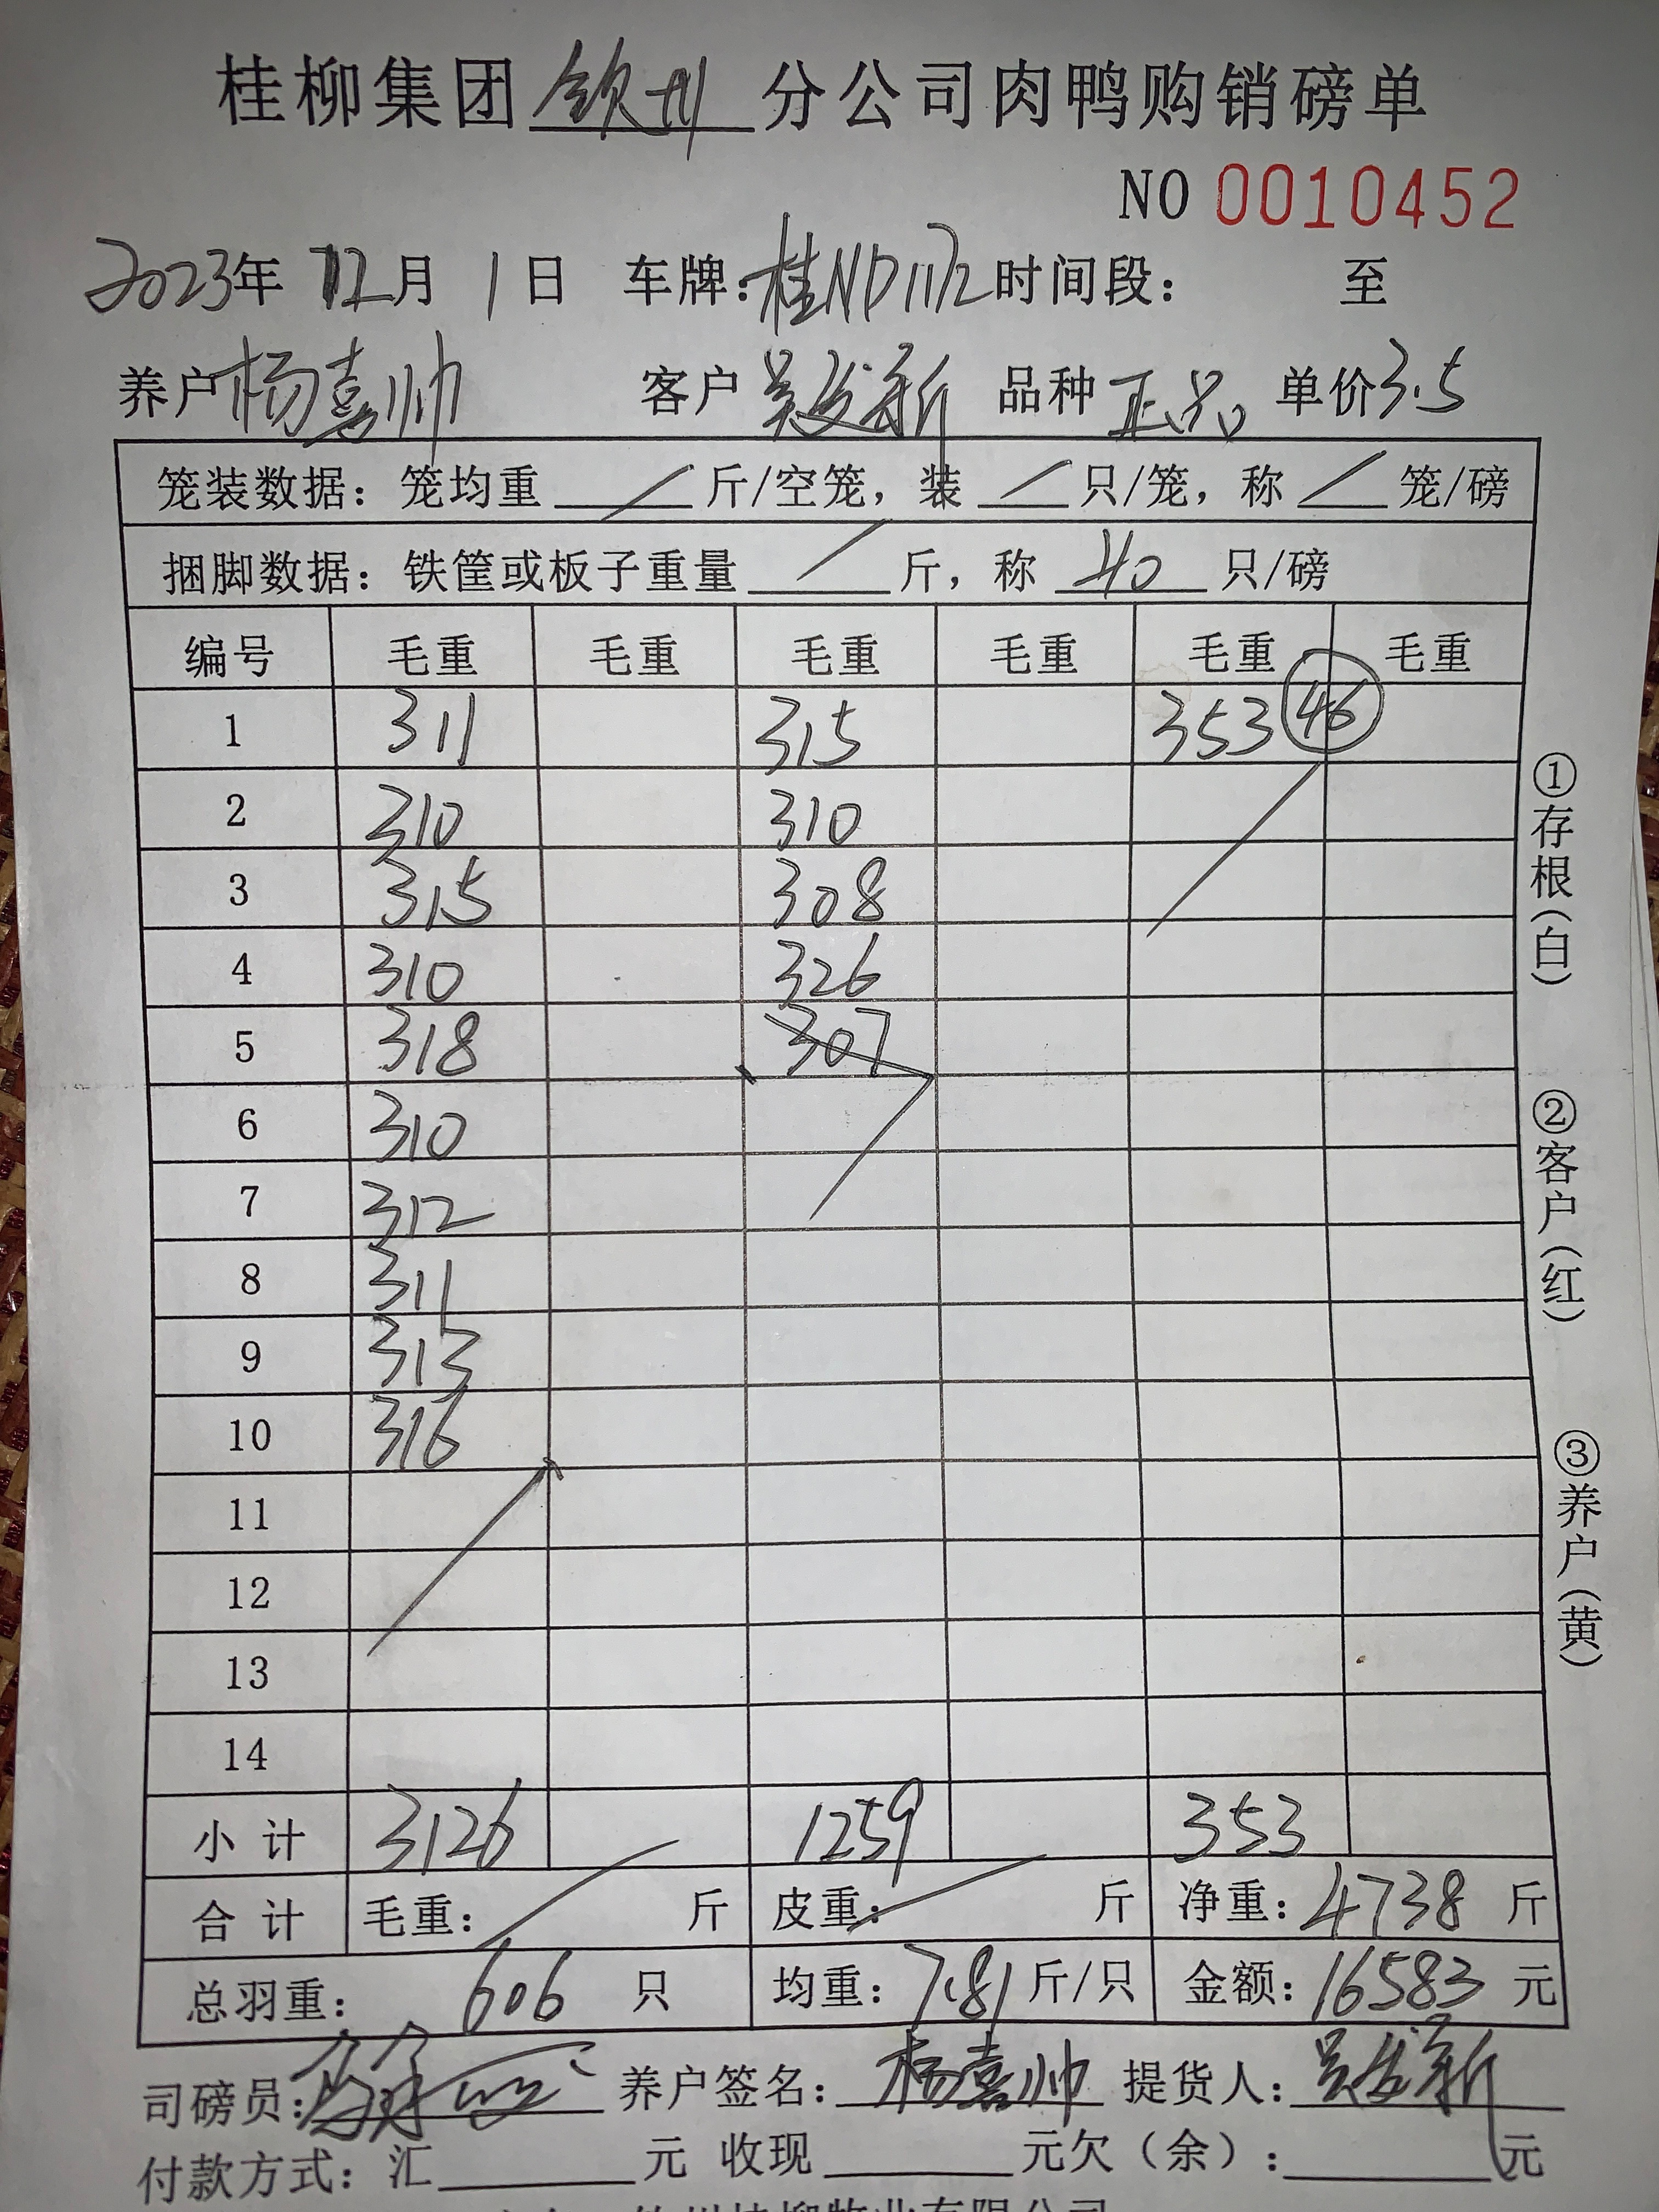 桂柳集团钦州分公司肉鸭购销磅单
NO 0010452
2023年 12月 1日 车牌:桂ND1112 时间段: 至
养户 杨嘉帅 客户 吴发新 品种 正品 单价 3.5
笼装数据: 笼均重 / 斤/空笼, 装 / 只/笼, 称 / 笼/磅
捆脚数据: 铁筐或板子重量 / 斤, 称 40 只/磅
编号 毛重 毛重 毛重 毛重 毛重 毛重
1 311 315 353 46
2 310 310
3 315 308
4 310 326
5 318 307
6 310
7 312
8 311
9 313
10 316
11
12
13
14
小计 3126 1259 353
合计 毛重: 斤 皮重: 斤 净重: 4738 斤
总羽重: 606 只 均重: 7.81 斤/只 金额: 16583 元
司磅员: 养户签名: 杨嘉帅 提货人: 吴发新
付款方式: 汇 元 收现 元欠(余): 元
①存根(白)
②客户(红)
③养户(黄)